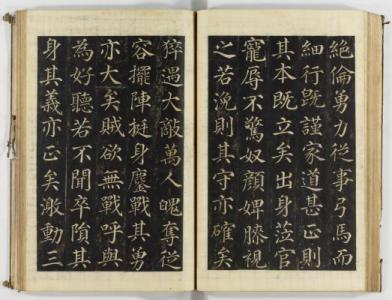 絶倫勇力從事弓馬而
細行既謹家道甚正則
其本既立矣出身蒞官
寵辱不驚奴顔婢膝視
之若浼則其守亦確矣
猝遇大敵萬人魄奪從
容擺陣挺身鏖戰其勇
亦大矣賊欲無戰呼與
為好聽若不聞卒隕其
身其義亦正矣激動三